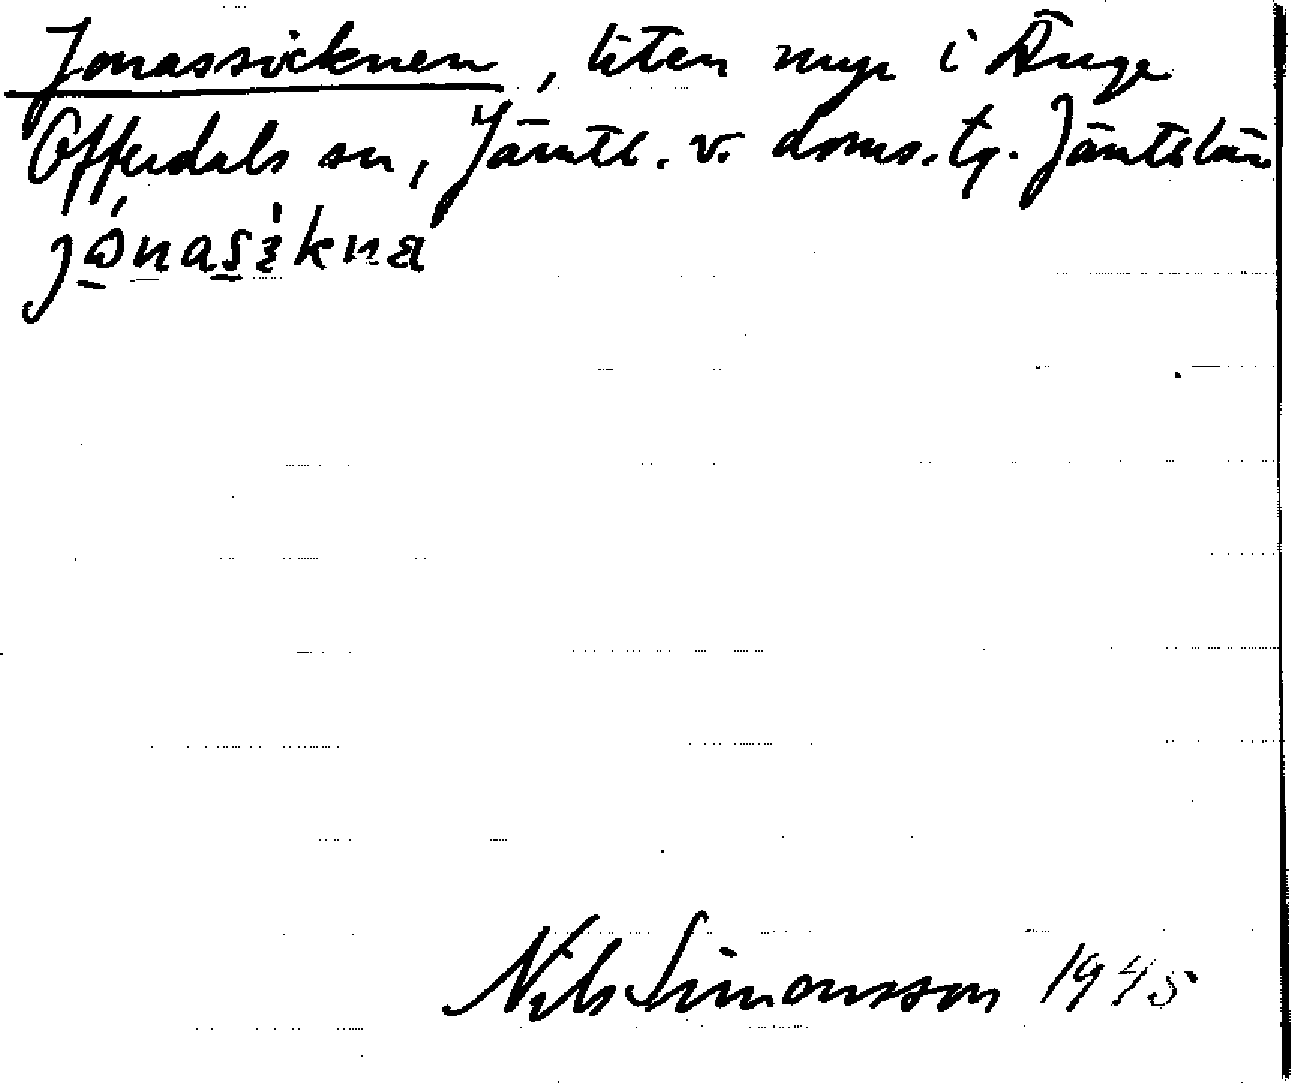 Jonassicknen, liten myr i Ånge
Offerdals sn, Jämtl. v. doms. tg. Jämtslän
Nils Simonsson 1945